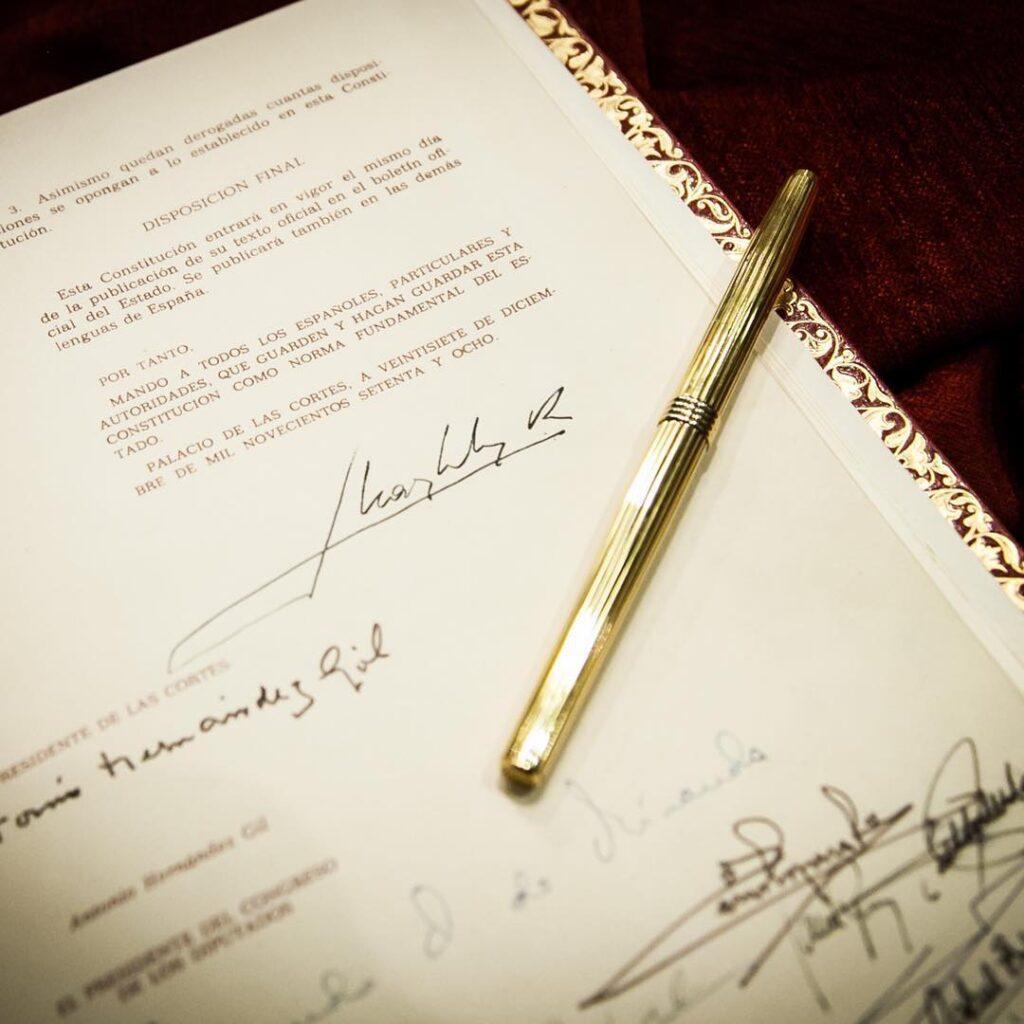 3. Asimismo quedan derogadas cuantas disposi-
iones se opongan a lo establecido en esta Consti-
tución.
DISPOSICION FINAL
Esta Constitución entrará en vigor el mismo día
de la publicación de su texto oficial en el boletín ofi-
cial del Estado. Se publicará también en las demás
lenguas de España.
POR TANTO,
MANDO A TODOS LOS ESPAÑOLES, PARTICULARES Y
AUTORIDADES, QUE GUARDEN Y HAGAN GUARDAR ESTA
CONSTITUCION COMO NORMA FUNDAMENTAL DEL ES-
TADO.
PALACIO DE LAS CORTES, A VEINTISIETE DE DICIEM-
BRE DE MIL NOVECIENTOS SETENTA Y OCHO.
RESIDENTE DE LAS CORTES
Hernández Gil
Antonio Hernández Gil
EL PRESIDENTE DEL CONGRESO
DE LOS DIPUTADOS